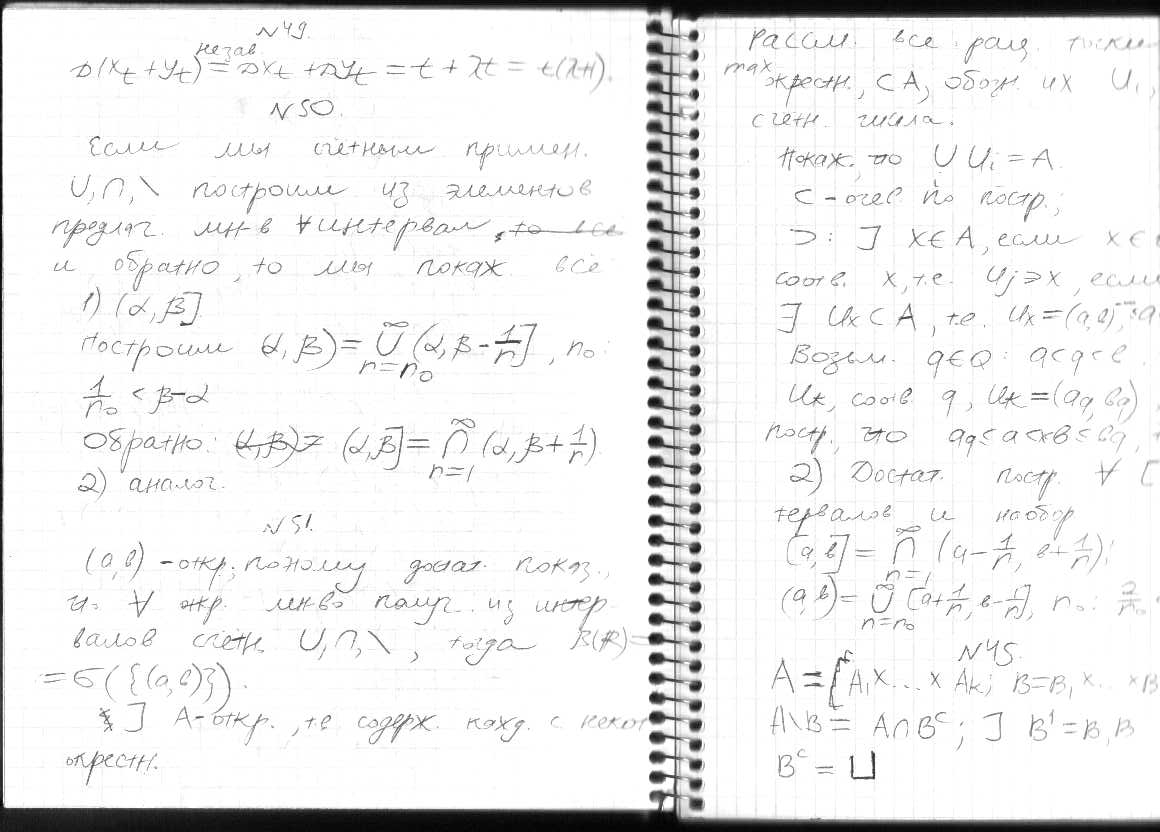 N49.
незав
D(Xt + Yt) = DXt + DYt = t + λt = t(λ+1).
N50.
Если мы счётным примен.
∪,∩,\ построим из элементов
предлаг. мн-в ∀ интервал, то все
и обратно, то мы покаж все
1) (α, β]
Построим (α, β) = ∪ (α, β - 1/n], n₀:
n=n₀ ∞
1/n₀ < β-α
Обратно: (α, β) = (α, β] = ∩ (α, β + 1/n)
n=1 ∞
2) аналог.
N51.
(a, b) - откр., поэтому достат. показ.,
чт. ∀ откр. мн-во получ. из интер
валов счётн. ∪,∩,\, тогда B(R) =
= σ({(a, b)}).
∃ A - откр., т.е. содерж. кажд. с некот
окрестн.
Рассм. все рац. точки
max
окрестн., ⊂ A, обозн. их Ui,
счётн. числа.
Покаж., что ∪ Ui = A.
⊂ - очев. по постр.;
⊃: ∃ x∈A, если x∈
соотв. x, т.е. Uj∋x, если
∃ Ux ⊂ A, т.е. Ux = (a, b),
Возьм. q∈Q: a<q<b
Uk, соотв q, Uk = (aq, bq)
постр., что aq≤a<x<b≤bq,
2) Достат. постр. ∀ [
тервалов и наобор
[a, b] = ∩ (a - 1/n, b + 1/n);
n=1 ∞
(a, b) = ∪ [a + 1/n, b - 1/n], n₀: 2/n₀
n=n₀ ∞
N45.
A = A₁ × ... × Ak; B = B₁ × ... × B
A\B = A∩Bᶜ; ∃ B¹ = B, B
Bᶜ = ⊔